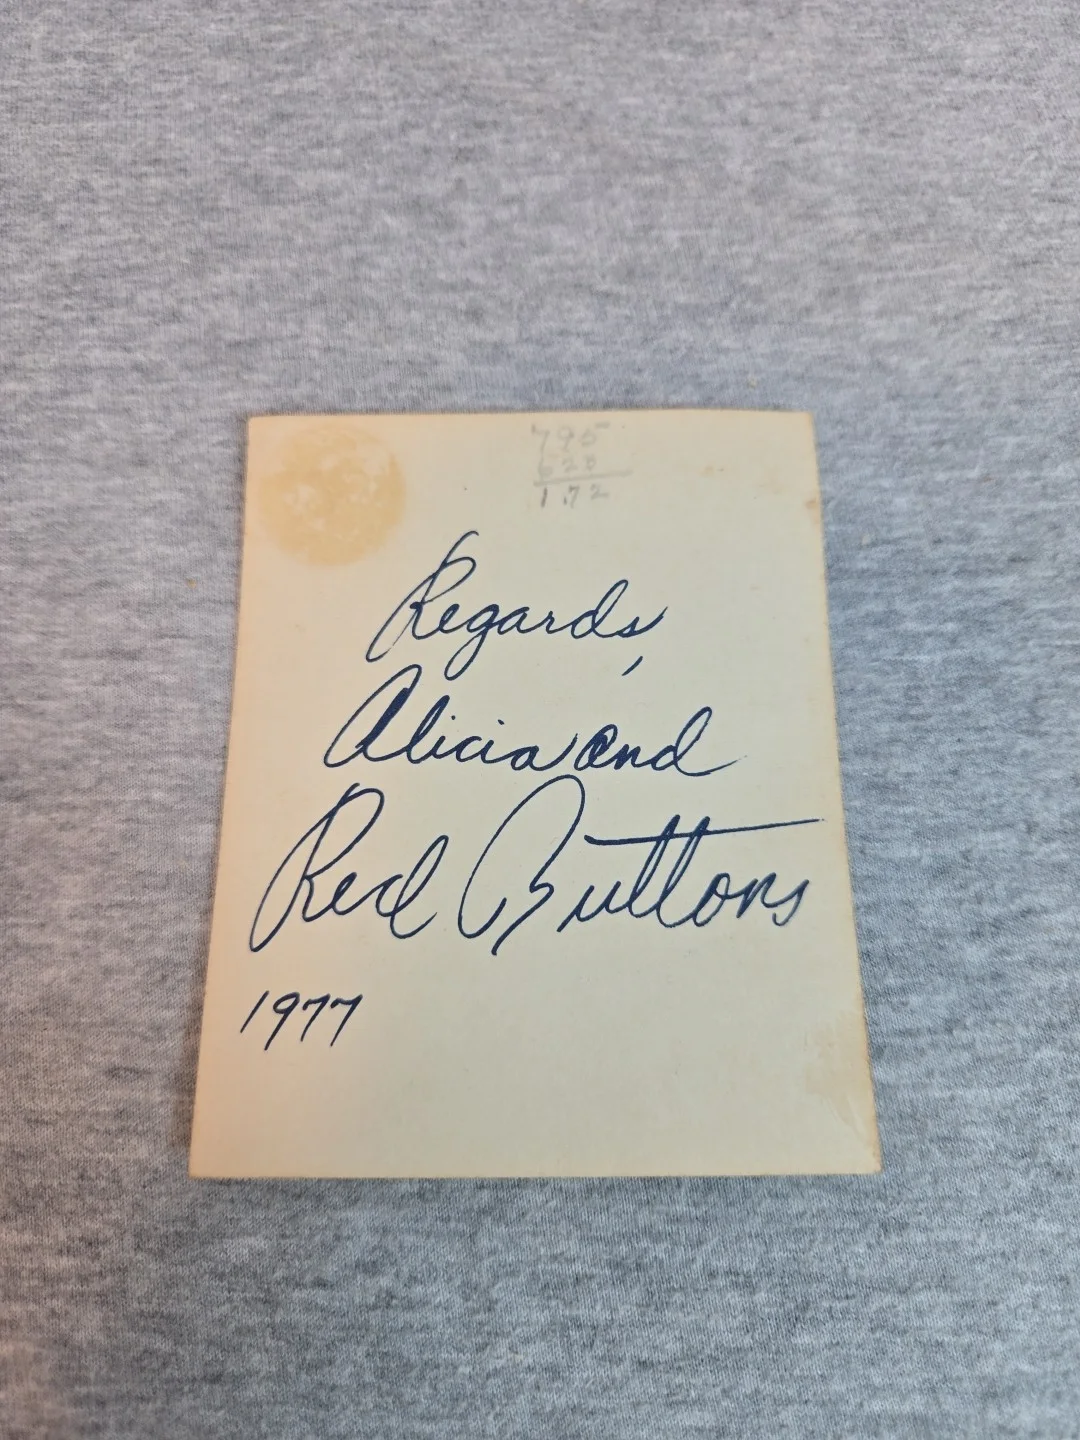 795
623
1.72
Regards,
Alicia and
Red Buttons
1977